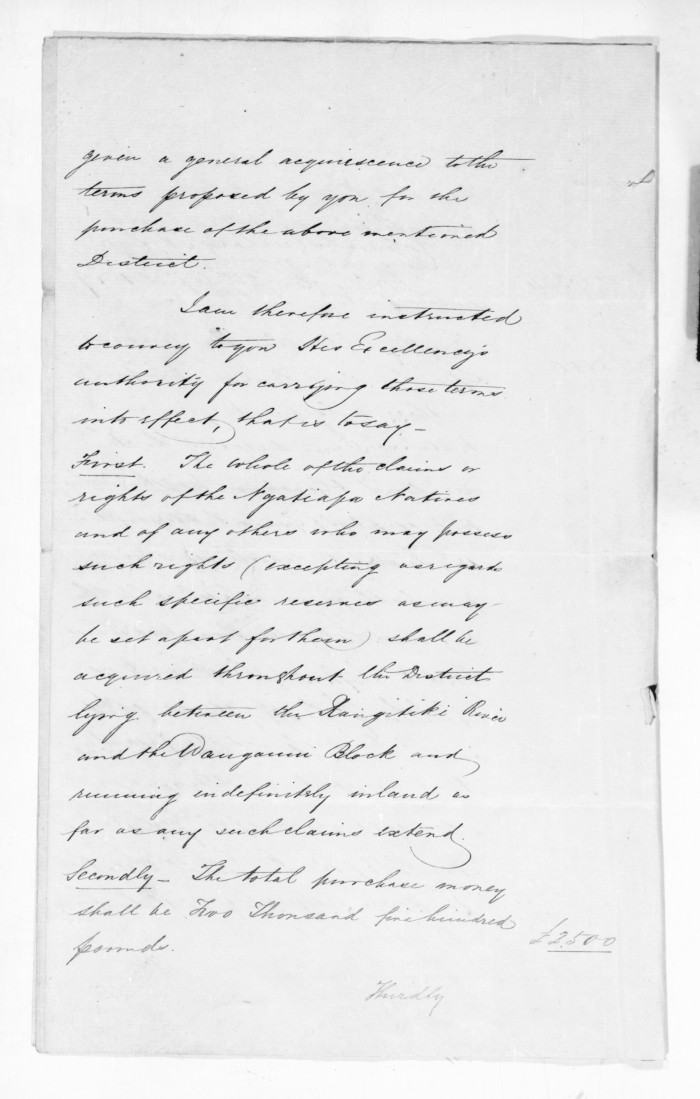 given a general acquiescence to the
terms proposed by you for the
purchase of the above mentioned
District.
I am therefore instructed
to convey to you His Excellency's
authority for carrying those terms
into effect, that is to say —
First. The whole of the claims or
rights of the Ngatiapa Natives
and of any others who may possess
such rights (excepting as regards
such specific reserves as may
be set apart for them) shall be
acquired throughout the District
lying between the Rangitiki River
and the Wanganui Block and
running indefinitely inland as
far as any such claims extend.
Secondly — The total purchase money
shall be Two Thousand five hundred
pounds.
£2,500
Thirdly